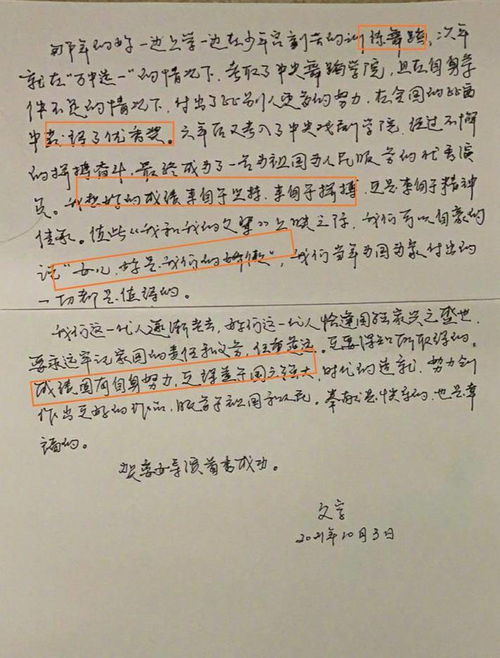 一边上学一边在少年宫刻苦的训练舞蹈，次年
就在“万中选一”的情况下，考取了中央舞蹈学院，且在自身条
件不足的情况下，付出了比别人更多的努力，在全国的比赛
中获得了优秀奖。六年后又考入了中央戏剧学院，经过不懈
的拼搏奋斗，最终成为了一名为祖国为人民服务的优秀演
员。我想你的成绩来自于坚持，来自于拼搏，更是来自于精神
传承。值此《我和我的父辈》上映之际，我们可以自豪的
说“女儿，你是我们的骄傲”，我们当年为国为家付出的
一切都是值得的。
我们这一代人逐渐老去，你们这一代人恰逢国强家兴之盛世，
要永远牢记家国的责任和义务，任重道远。更要深知所取得的
成绩固有自身努力，更得益于国之强大，时代的造就，努力创
作出更好的作品，服务于祖国和人民。奉献是快乐的，也是幸
福的。
祝章子怡导演首秀成功。
父字
2021年10月3日